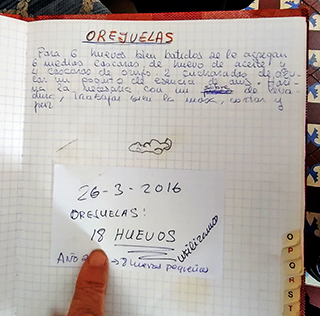 OREJUELAS
Para 6 huevos bien batidos se le agregan
6 medias cascaras de huevo de aceite y
4 cascaras de orujo. 2 cucharadas de azu-
car un poquito de esencia de anis. Hari-
na la necesaria con un sobre de leva-
dura, Trabajar bien la masa, cortar y
freir
26-3-2016
OREJUELAS:
18 HUEVOS
utilizamos
AÑO → 8 huevos pequeños
O
P
Q
R
S
T